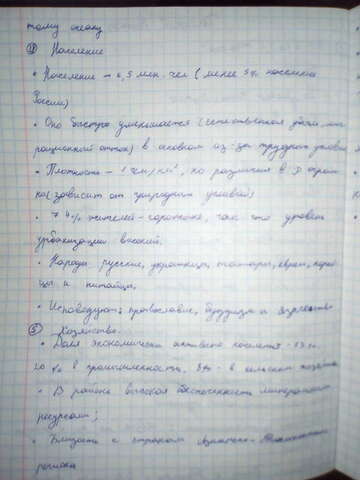 тому океану
④ Население
• Население – 6,5 млн. чел ( менее 5% населения
России)
• Оно быстро уменьшается (естественная убыль, миг
рационный отток) в основном из-за трудных условий
• Плотность – 1 чел/км², но различия в
(зависит от природных условий)
• 74% жителей – горожане, так что уровень
урбанизации высокий.
• Народы русские, украинцы, татары, евреи, корей
цы и китайцы.
• Исповедуют: православие, буддизм и
⑤ Хозяйство.
• Доля экономически активного населения -
20 % в промышленности, 5% - в сельском хозяйстве
• В районе высокая обеспеченность минеральными
ресурсами;
• Близость к странам Азиатско-Тихоокеанского
региона